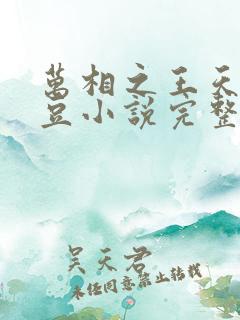 萬相之王天
豆小說完整
吴天君
未经同意禁止转载